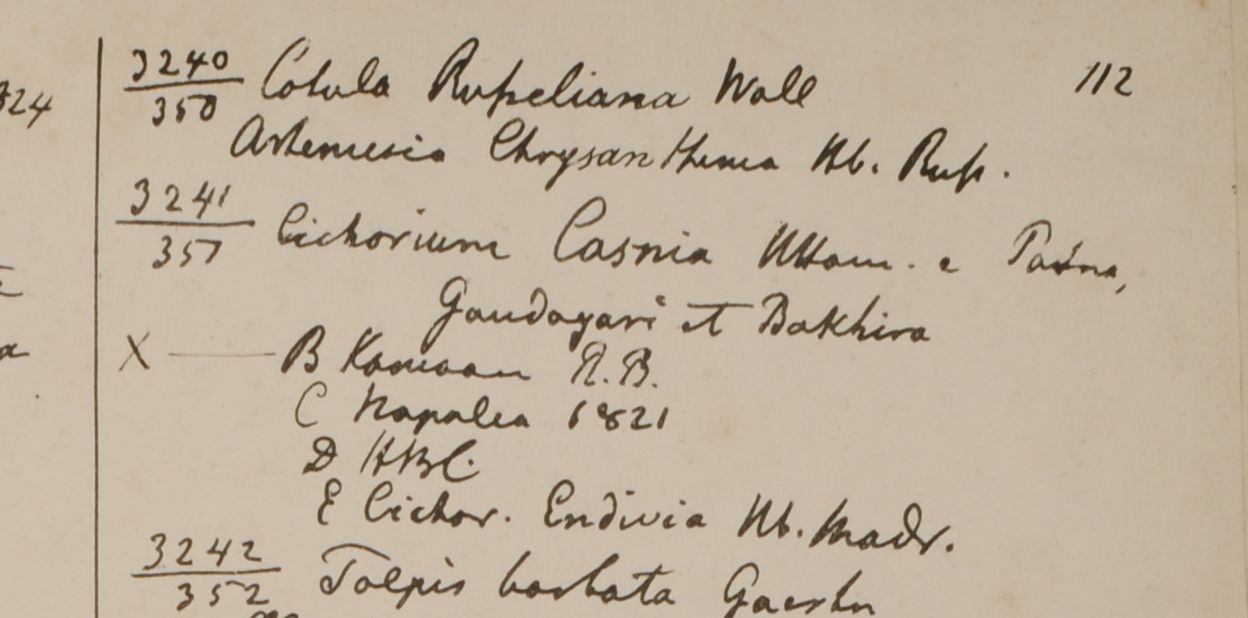 324
3240/350 Cotula Rupeliana Wall 112
Artemisia Chrysanthema Hb. Rup.
3241/351 Cichorium Casnia Ham. e Patna,
Goudagari et Bakhira
X — B Kamaon R.B.
C Napalea 1821
D HBC.
E Cichor. Endivia Hb. Madr.
3242/352 Tolpis barbata Gaertn